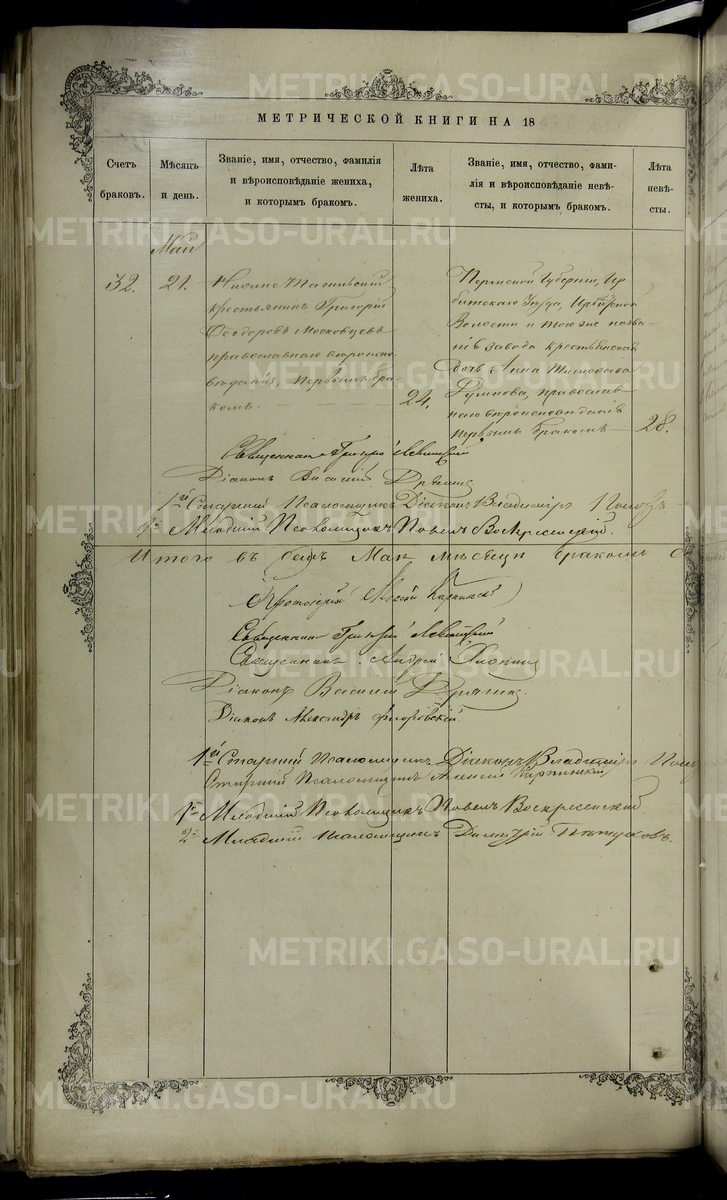 МЕТРИЧЕСКОЙ КНИГИ НА 18
Счетъ браковъ.
Мѣсяцъ и день.
Званіе, имя, отчество, фамилія
и вѣроисповѣданіе жениха,
и которымъ бракомъ.
Лѣта жениха.
Званіе, имя, отчество, фами-
лія и вѣроисповѣданіе невѣ-
сты, и которымъ бракомъ.
Лѣта невѣ-
сты.
Май
32.
21.
Нижне Тагильскій
крестьянинъ Григорій
Ѳеодоровъ Московцевъ
православнаго вѣроиспо
вѣданія, первымъ бра-
комъ.
24.
Пермской Губерніи, Ир
битскаго Уѣзда, Ирбитской
Волости и того же назва-
нія завода крестьянская
дочь Анна Тимофеева
православ
наго вѣроисповѣданія
первымъ бракомъ
28.
Священникъ Григорій Левитскій
Діаконъ Василій
1й Старшій Псаломщикъ Діаконъ Владиміръ Поповъ.
1й Младшій Псаломщикъ Павелъ Воскресенскій.
Итого въ Маѣ мѣсяцѣ браковъ
Протоіерей
Священникъ Григорій Левитскій
Священникъ Андрей
Діаконъ Василій
Діаконъ Александръ Флоровскій.
1й Старшій Псаломщикъ Діаконъ Владиміръ Поп
Старшій Псаломщикъ Алексѣй Карпинскій
1й Младшій Псаломщикъ Павелъ Воскресенскій.
2й Младшій Псаломщикъ Димитрій Пѣтуховъ.
METRIKI.GASO-URAL.RU